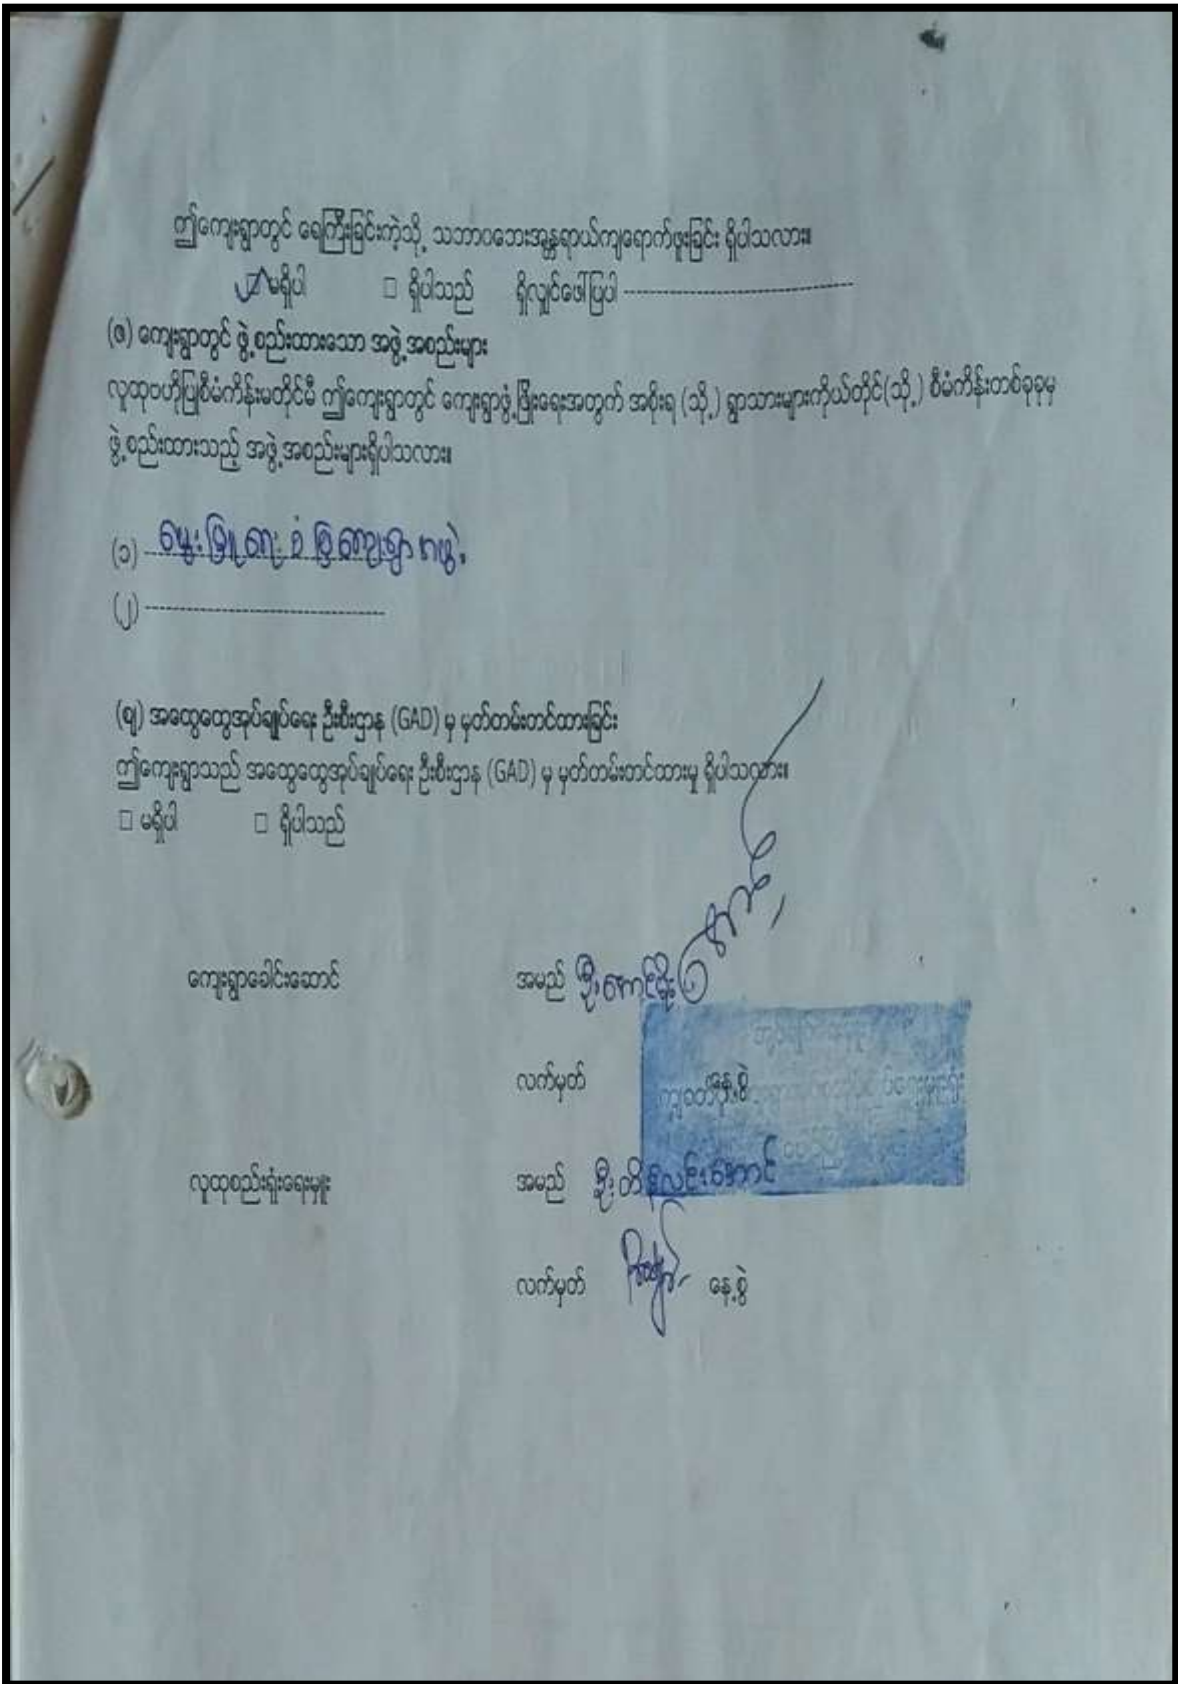 ဤကျေးရွာတွင် ရေကြီးခြင်းကဲ့သို့ သဘာဝဘေးအန္တရာယ်ကျရောက်ဖူးခြင်း ရှိပါသလား။
☑ မရှိပါ □ ရှိပါသည် ရှိလျှင်ဖေါ်ပြပါ --------------------
(ဇ) ကျေးရွာတွင် ဖွဲ့စည်းထားသော အဖွဲ့အစည်းများ
လူထုဗဟိုပြုစီမံကိန်းမတိုင်မီ ဤကျေးရွာတွင် ကျေးရွာဖွံ့ဖြိုးရေးအတွက် အစိုးရ (သို့) ရွာသားများကိုယ်တိုင်(သို့) စီမံကိန်းတစ်ခုခုမှ
ဖွဲ့စည်းထားသည့် အဖွဲ့အစည်းများရှိပါသလား။
(၁) မွေးမြူရေး စံပြကျေးရွာအဖွဲ့
(၂) --------------------
(ဈ) အထွေထွေအုပ်ချုပ်ရေး ဦးစီးဌာန (GAD) မှ မှတ်တမ်းတင်ထားခြင်း
ဤကျေးရွာသည် အထွေထွေအုပ်ချုပ်ရေး ဦးစီးဌာန (GAD) မှ မှတ်တမ်းတင်ထားမှု ရှိပါသလား။
□ မရှိပါ □ ရှိပါသည်
ကျေးရွာခေါင်းဆောင် အမည် ဦးအောင်မိုး
လက်မှတ် နေ့စွဲ
လူထုစည်းရုံးရေးမှူး အမည် ဦးထိန်လင်းအောင်
လက်မှတ် နေ့စွဲ